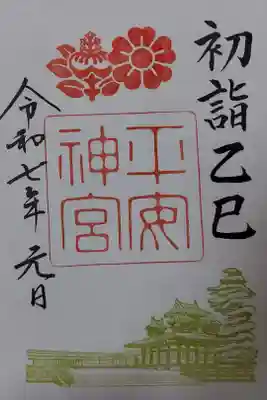 初詣乙巳
平安
神宮
令和七年 元日